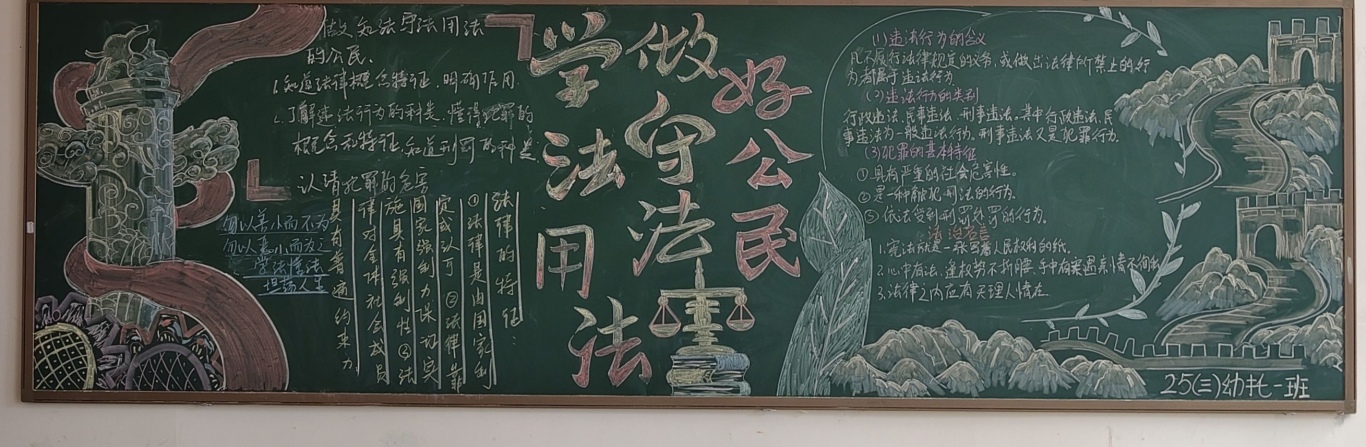 做知法守法用法
的公民、
1.知道法律概念特征、明确作用.
2.了解违法行为的种类、懂得犯罪的
概念和特征、知道刑罚的种类
认清犯罪的危害
勿以善小而不为
勿以恶小而为之
学法懂法
坦荡人生
法律的特征:
①法律是由国家制
定或认可 ②法律靠
国家强制力保证实
施具有强制性 ③法
律对全体社会成员
具有普遍约束力
学法用法
做守法
好公民
(1)违法行为的含义
凡不履行法律规定的义务,或做出法律所禁止的行
为都属于违法行为.
(2)违法行为的类别
行政违法、民事违法、刑事违法。其中行政违法、民
事违法为一般违法行为,刑事违法又是犯罪行为.
(3)犯罪的基本特征
①具有严重的社会危害性。
②是一种触犯刑法的行为.
③依法受到刑罚处罚的行为.
法治名言
1.宪法就是一张写着人民权利的纸.
2.心中有法,逢权势不折腰,手中有案遇亲情不徇私
3.法律之内应有天理人情在.
25(三)幼托一班